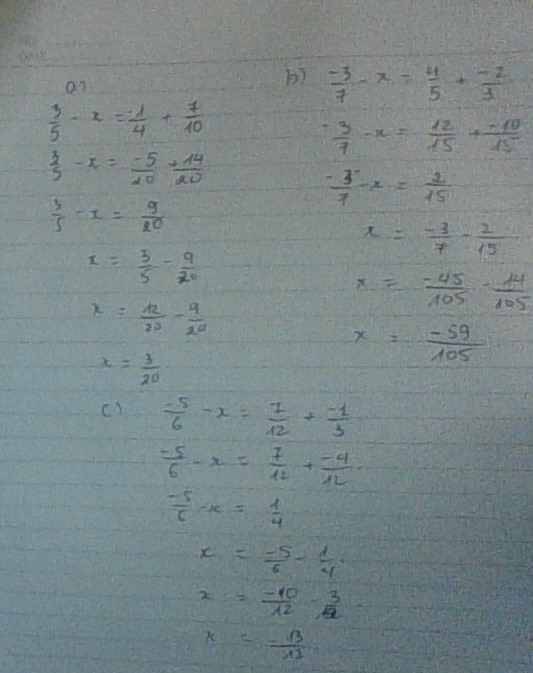 a)
3/5 - x = -1/4 + 7/10
3/5 - x = -5/20 + 14/20
3/5 - x = 9/20
x = 3/5 - 9/20
x = 12/20 - 9/20
x = 3/20
b) -3/7 - x = 4/5 + -2/3
-3/7 - x = 12/15 + -10/15
-3/7 - x = 2/15
x = -3/7 - 2/15
x = -45/105 - 14/105
x = -59/105
c) -5/6 - x = 7/12 + -1/3
-5/6 - x = 7/12 + -4/12
-5/6 - x = 1/4
x = -5/6 - 1/4
x = -10/12 - 3/12
x = -13